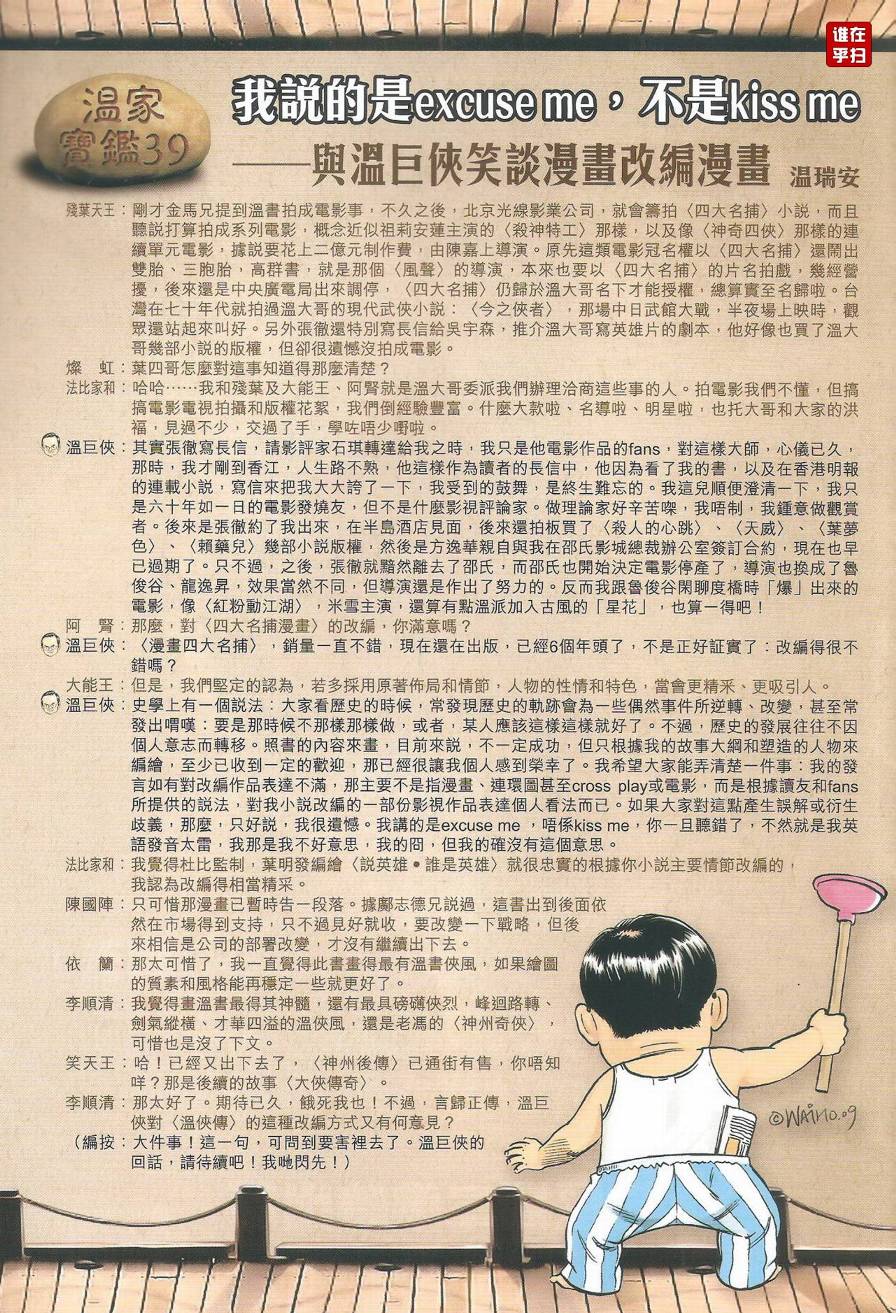 谁在
乎扫
溫家
寶鑑39
我説的是excuse me，不是kiss me
──與溫巨俠笑談漫畫改編漫畫 温瑞安
殘葉天王：剛才金馬兄提到溫書拍成電影事，不久之後，北京光線影業公司，就會籌拍〈四大名捕〉小説，而且
聽説打算拍成系列電影，概念近似祖莉安蓮主演的〈殺神特工〉那樣，以及像〈神奇四俠〉那樣的連
續單元電影，據説要花上二億元制作費，由陳嘉上導演。原先這類電影冠名權以〈四大名捕〉還鬧出
雙胎、三胞胎，高群書，就是那個〈風聲〉的導演，本來也要以〈四大名捕〉的片名拍戲，幾經營
擾，後來還是中央廣電局出來調停，〈四大名捕〉仍歸於溫大哥名下才能授權，總算實至名歸啦。台
灣在七十年代就拍過溫大哥的現代武俠小説：〈今之俠者〉，那場中日武館大戰，半夜場上映時，觀
眾還站起來叫好。另外張徹還特別寫長信給吳宇森，推介溫大哥寫英雄片的劇本，他好像也買了溫大
哥幾部小説的版權，但卻很遺憾沒拍成電影。
燦　虹：葉四哥怎麼對這事知道得那麼清楚？
法比家和：哈哈……我和殘葉及大能王、阿腎就是溫大哥委派我們辦理洽商這些事的人。拍電影我們不懂，但搞
搞電影電視拍攝和版權花絮，我們倒經驗豐富。什麼大款啦、名導啦、明星啦，也托大哥和大家的洪
福，見過不少，交過了手，學咗唔少嘢啦。
溫巨俠：其實張徹寫長信，請影評家石琪轉達給我之時，我只是他電影作品的fans，對這樣大師，心儀已久，
那時，我才剛到香江，人生路不熟，他這樣作為讀者的長信中，他因為看了我的書，以及在香港明報
的連載小説，寫信來把我大大誇了一下，我受到的鼓舞，是終生難忘的。我這兒順便澄清一下，我只
是六十年如一日的電影發燒友，但不是什麼影視評論家。做理論家好辛苦㗎，我唔制，我鍾意做觀賞
者。後來是張徹約了我出來，在半島酒店見面，後來還拍板買了〈殺人的心跳〉、〈天威〉、〈葉夢
色〉、〈賴藥兒〉幾部小説版權，然後是方逸華親自與我在邵氏影城總裁辦公室簽訂合約，現在也早
已過期了。只不過，之後，張徹就黯然離去了邵氏，而邵氏也開始決定電影停產了，導演也換成了魯
俊谷、龍逸昇，效果當然不同，但導演還是作出了努力的。反而我跟魯俊谷閑聊度橋時「爆」出來的
電影，像〈紅粉動江湖〉，米雪主演，還算有點溫派加入古風的「星花」，也算一得吧！
阿　腎：那麼，對〈四大名捕漫畫〉的改編，你滿意嗎？
溫巨俠：〈漫畫四大名捕〉，銷量一直不錯，現在還在出版，已經6個年頭了，不是正好証實了：改編得很不
錯嗎？
大能王：但是，我們堅定的認為，若多採用原著佈局和情節，人物的性情和特色，當會更精釆、更吸引人。
溫巨俠：史學上有一個説法：大家看歷史的時候，常發現歷史的軌跡會為一些偶然事件所逆轉、改變，甚至常
發出喟嘆：要是那時候不那樣那樣做，或者，某人應該這樣這樣就好了。不過，歷史的發展往往不因
個人意志而轉移。照書的內容來畫，目前來説，不一定成功，但只根據我的故事大綱和塑造的人物來
編繪，至少已收到一定的歡迎，那已經很讓我個人感到榮幸了。我希望大家能弄清楚一件事：我的發
言如有對改編作品表達不滿，那主要不是指漫畫、連環圖甚至cross play或電影，而是根據讀友和fans
所提供的説法，對我小説改編的一部份影視作品表達個人看法而已。如果大家對這點產生誤解或衍生
歧義，那麼，只好説，我很遺憾。我講的是excuse me ，唔係kiss me，你一旦聽錯了，不然就是我英
語發音太雷，我那是我不好意思，我的囧，但我的確沒有這個意思。
法比家和：我覺得杜比監制，葉明發編繪〈説英雄●誰是英雄〉就很忠實的根據你小説主要情節改編的，
我認為改編得相當精采。
陳國陣：只可惜那漫畫已暫時告一段落。據鄺志德兄説過，這書出到後面依
然在市場得到支持，只不過見好就收，要改變一下戰略，但後
來相信是公司的部署改變，才沒有繼續出下去。
依　蘭：那太可惜了，我一直覺得此書畫得最有溫書俠風，如果繪圖
的質素和風格能再穩定一些就更好了。
李順清：我覺得畫溫書最得其神髓，還有最具磅礡俠烈，峰迴路轉、
劍氣縱橫、才華四溢的溫俠風，還是老馮的〈神州奇俠〉，
可惜也是沒了下文。
笑天王：哈！已經又出下去了，〈神州後傳〉已通街有售，你唔知
咩？那是後續的故事〈大俠傳奇〉。
李順清：那太好了。期待已久，餓死我也！不過，言歸正傳，溫巨
俠對〈溫俠傳〉的這種改編方式又有何意見？
（編按：大件事！這一句，可問到要害裡去了。溫巨俠的
回話，請待續吧！我哋閃先！）
©WAIHO.09